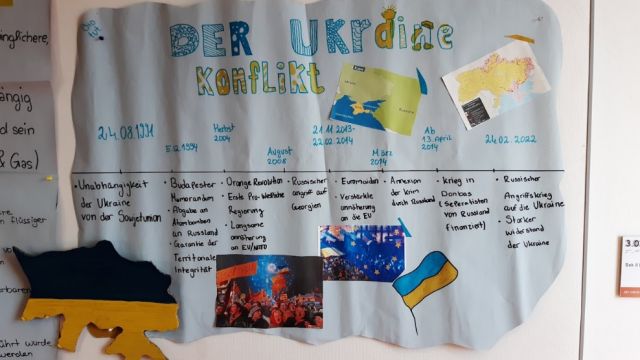 DER UKRAINE
KONFLIKT
24.08.1991
5.12.1994
Herbst
2004
August
2008
21.11.2013-
22.02.2014
März
2014
Ab
13. April
2014
24.02.2022
• Unabhängigkeit
der Ukraine
von der Sowjetunion
• Budapester
Memorandum
• Abgabe an
Atombomben
an Russland
• Garantie der
Territoriale
Integrität
• Orange Revolution
• Erste Pro-Westliche
Regierung
• Langsame
annäherung
an EU/NATO
• Russischer
angriff auf
Georgien
• Euromaidan
• Verstärkte
annäherung
an die EU
• Annexion
der Krim
durch Russland
• Krieg in
Donbas
(Seperatisten
von Russland
finanziert)
• Russischer
Angriffskrieg
auf die Ukraine
• Starker
widerstand
der Ukraine
nglichere,
ngig
d sein
& Gas)
Flüssiger
rbaren
ührt wurde
werden
3.0